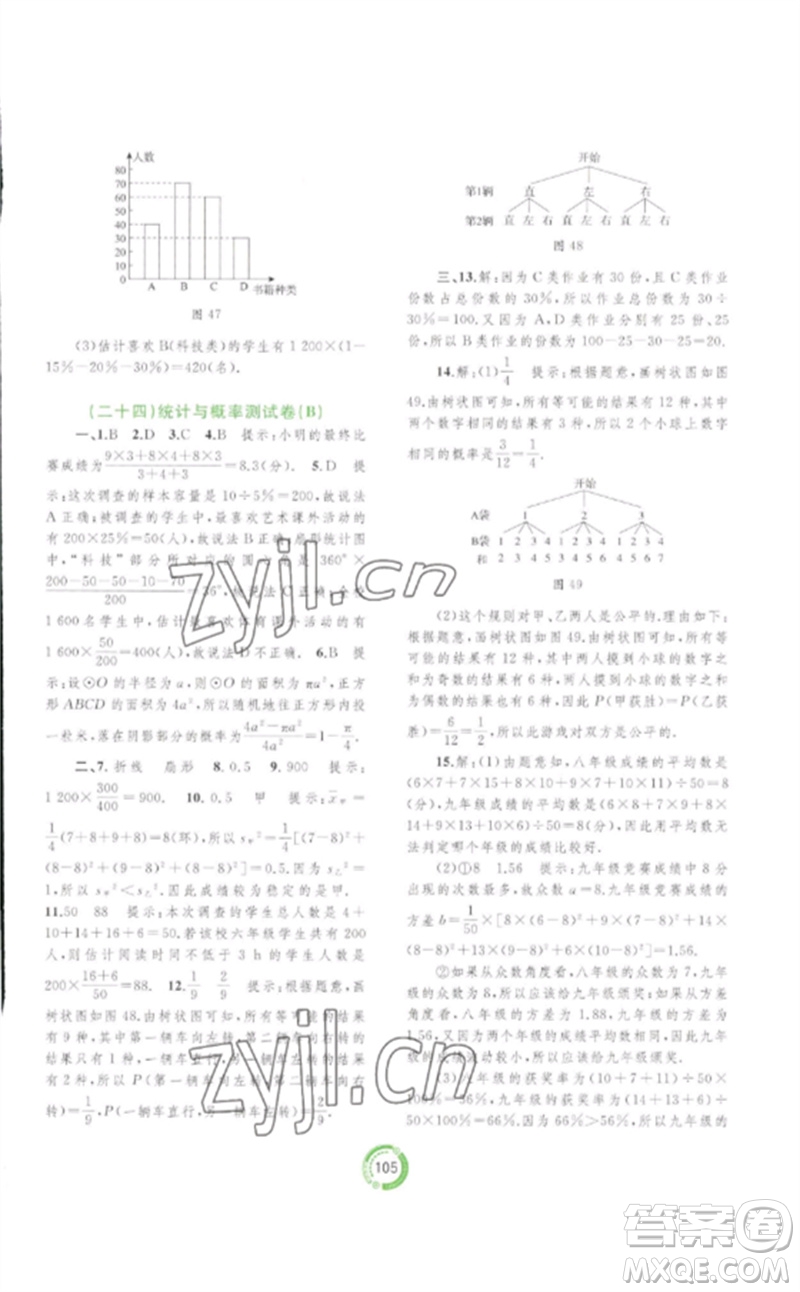 人数
80
70
60
50
40
30
20
10
0
A B C D 书籍种类
图 47
(3)估计喜欢 B(科技类)的学生有 1 200×(1-
15%-20%-30%)=420(名).
(二十四)统计与概率测试卷(B)
一、1.B 2.D 3.C 4.B 提示:小明的最终比
赛成绩为9×3+8×4+8×3/3+4+3=8.3(分). 5.D 提
示:这次调查的样本容量是 10÷5%=200,故说法
A 正确;被调查的学生中,最喜欢艺术课外活动的
有 200×25%=50(人),故说法 B 正确;扇形统计图
中,“科技”部分所对应的圆心角是 360°×
200-50-50-10-70/200=36°,故说法 C 正确;全校
1 600名学生中,估计最喜欢体育课外活动的有
1 600×50/200=400(人),故说法 D 不正确. 6.B
提示:设⊙O 的半径为 a,则⊙O 的面积为 πa²,正方
形 ABCD 的面积为 4a²,所以随机地往正方形内投
一粒米,落在阴影部分的概率为4a²-πa²/4a²=1-π/4.
二、7. 折线 扇形 8. 0.5 9. 900 提示:
1 200×300/400=900. 10. 0.5 甲 提示:x̄甲=
1/4(7+8+9+8)=8(环),所以 s甲²=1/4[(7-8)²+
(8-8)²+(9-8)²+(8-8)²]=0.5. 因为 s乙²=
1,所以 s甲²<s乙². 因此成绩较为稳定的是甲.
11.50 88 提示:本次调查的学生总人数是 4+
10+14+16+6=50. 若该校六年级学生共有 200
人,则估计阅读时间不低于 3 h 的学生人数是
200×16+6/50=88. 12. 1/9 2/9 提示:根据题意,画
树状图如图 48. 由树状图可知,所有等可能的结果
有 9 种,其中第一辆车向左转、第二辆车向右转的
结果有 1 种,两辆车中一辆车直行、另一辆车左转的结果
有 2 种,所以 P(第一辆车向左转、第二辆车向右转)
=1/9,P(一辆车直行,另一辆车左转)=2/9.
开始
第1辆 直 左 右
第2辆 直 左 右 直 左 右 直 左 右
图 48
三、13.解:因为 C 类作业有 30 份,且 C 类作业
份数占总份数的 30%,所以作业总份数为 30÷
30%=100. 又因为 A、D 类作业分别有 25 份、25
份,所以 B 类作业的份数为 100-25-30-25=20.
14.解:(1)1/4 提示:根据题意,画树状图如图
49. 由树状图可知,所有等可能的结果有 12 种,其
中两个小球上数字相同的结果有 3 种,所以两个小球上数字
相同的概率是3/12=1/4.
开始
A袋 1 2 3
B袋 1 2 3 4 1 2 3 4 1 2 3 4
和 2 3 4 5 3 4 5 6 4 5 6 7
图 49
(2)这个规则对甲、乙两人是公平的.理由如下:
根据题意,画树状图如图 49. 由树状图可知,所有等
可能的结果有 12 种,其中两人摸到小球的数字之
和为奇数的结果有 6 种,两人摸到小球的数字之和
为偶数的结果也有 6 种,所以 P(甲获胜)=P(乙获
胜)=6/12=1/2,所以此游戏对双方是公平的.
15.解:(1)由题意得:八年级成绩的平均数是
(6×7+7×15+8×10+9×7+10×11)÷50=8
(分),九年级成绩的平均数是(6×8+7×9+8×
14+9×13+10×6)÷50=8(分). 故用平均数无
法判定哪个年级的成绩比较好.
(2)①8 1.56 提示:九年级竞赛成绩中 8 分
出现的次数最多,故众数 a=8. 九年级竞赛成绩的
方差 b=1/50×[8×(6-8)²+9×(7-8)²+14×
(8-8)²+13×(9-8)²+6×(10-8)²]=1.56.
②如果从众数角度看,八年级的众数为 7,九年
级的众数为 8,所以应该给九年级颁奖;如果从方差
角度看,八年级的方差为 1.88,九年级的方差为
1.56,又因为两个年级的成绩平均数相同,故九年
级的成绩波动较小,所以应该给九年级颁奖.
(3)八年级的获奖率为(10+7+11)÷50×
100%=56%,九年级的获奖率为(14+13+6)÷50×
100%=66%. 因为 66%>56%,所以九年级的
105
zyjl.cn
zyjl.cn
答案卷
MXQE.COM